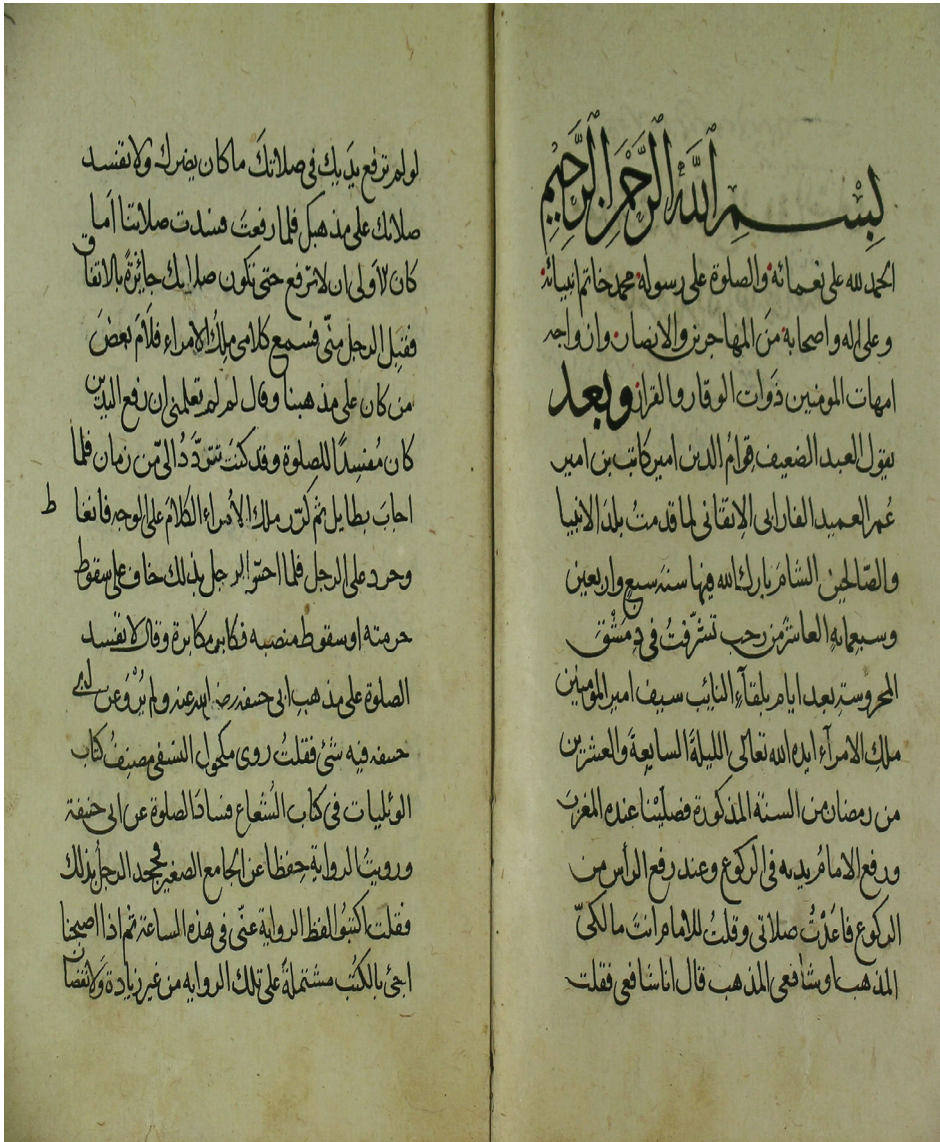 بِسْمِ اللَّهِ الرَّحْمَنِ الرَّحِيمِ
الحمد لله على نعمائه والصلوة على رسوله محمد خاتم انبيائه
وعلى اله واصحابه منَ المهاجرين والانصار وازواجه
امهات المومنين ذَوات الوقار والقرار وبعد
يقول العبد الضعيف قوامُ الدين امير كاتب بن امير
عُمر العميد الفارابى الاِتقانى لما قدمتُ بلدَ الانبيا
والصّالحين الشامَ بارك الله فيها سنة سبع واربعين
وسبعمايةٍ العاشرَ من رجب تشرّفتُ فى دِمَشْقَ
المحروسةِ بعد ايام بلقآءِ النائب سيف امير المؤمنين
ملكِ الامرآء ايده الله تعالى الليلةَ السابعةَ والعشرين
من رمضان من السنة المذكورة فصلّيْنا عنده المغربَ
ورفع الامامُ يديه فى الركوع وعند رفع الرأس من
الركوع فاعَدْتُ صلاتى وقلتُ للامام انتَ مالكىّ
المذهب اوشافعى المذهب قال انا شافعى فقلت
لو لم ترفع يدَيك فى صلاتكَ ما كان يضرك ولا تفسد
صلاتك على مذهبكل فلما رفعتَ فسدت صلاتنا أما
كان الاولى ان لا ترفع حتى تكون صلاتك جائزةً بالاتفاق
فقبِل الرجل منّى فسمع كلامى ملِكُ الامراء فلامَ بعضَ
من كان على مذهبنا وقال لم لم تعلمنى ان رفع اليدين
كان مُفسِدًا للصلوة وقد كنتَ تتردَّدُ الىّ من زمان فلما
اجابَ بطايل ثم كرّر ملك الاُمراء الكلامَ على الوجه فانغاط
وحرد على الرجل فلما احسّ الرجل بذلك خاف على سقوط
حرمته او سقوط منصبه فكابر مكابرة وقال لا تفسد
الصلوة على مذهبِ ابى حنيفه رضى الله عنه ولم يُرْوَ عن ابى
حنيفه فيه شئ فقلتُ روى مكحول النسفى مصنِفُ كتاب
الؤلياتِ فى كتاب الشعاع فسادَ الصلوة عن ابى حنيفة
ورويتُ الروايةَ حفظا عن الجامع الصغير فجحد الرجل بذلك
فقلت اكتبُوا لفظ الرواية عنّى فى هذه الساعة ثم اذا اصبحنا
اجئ بالكُتب مشتملةً على تلك الروايه من غير زيادة ولا نقصان